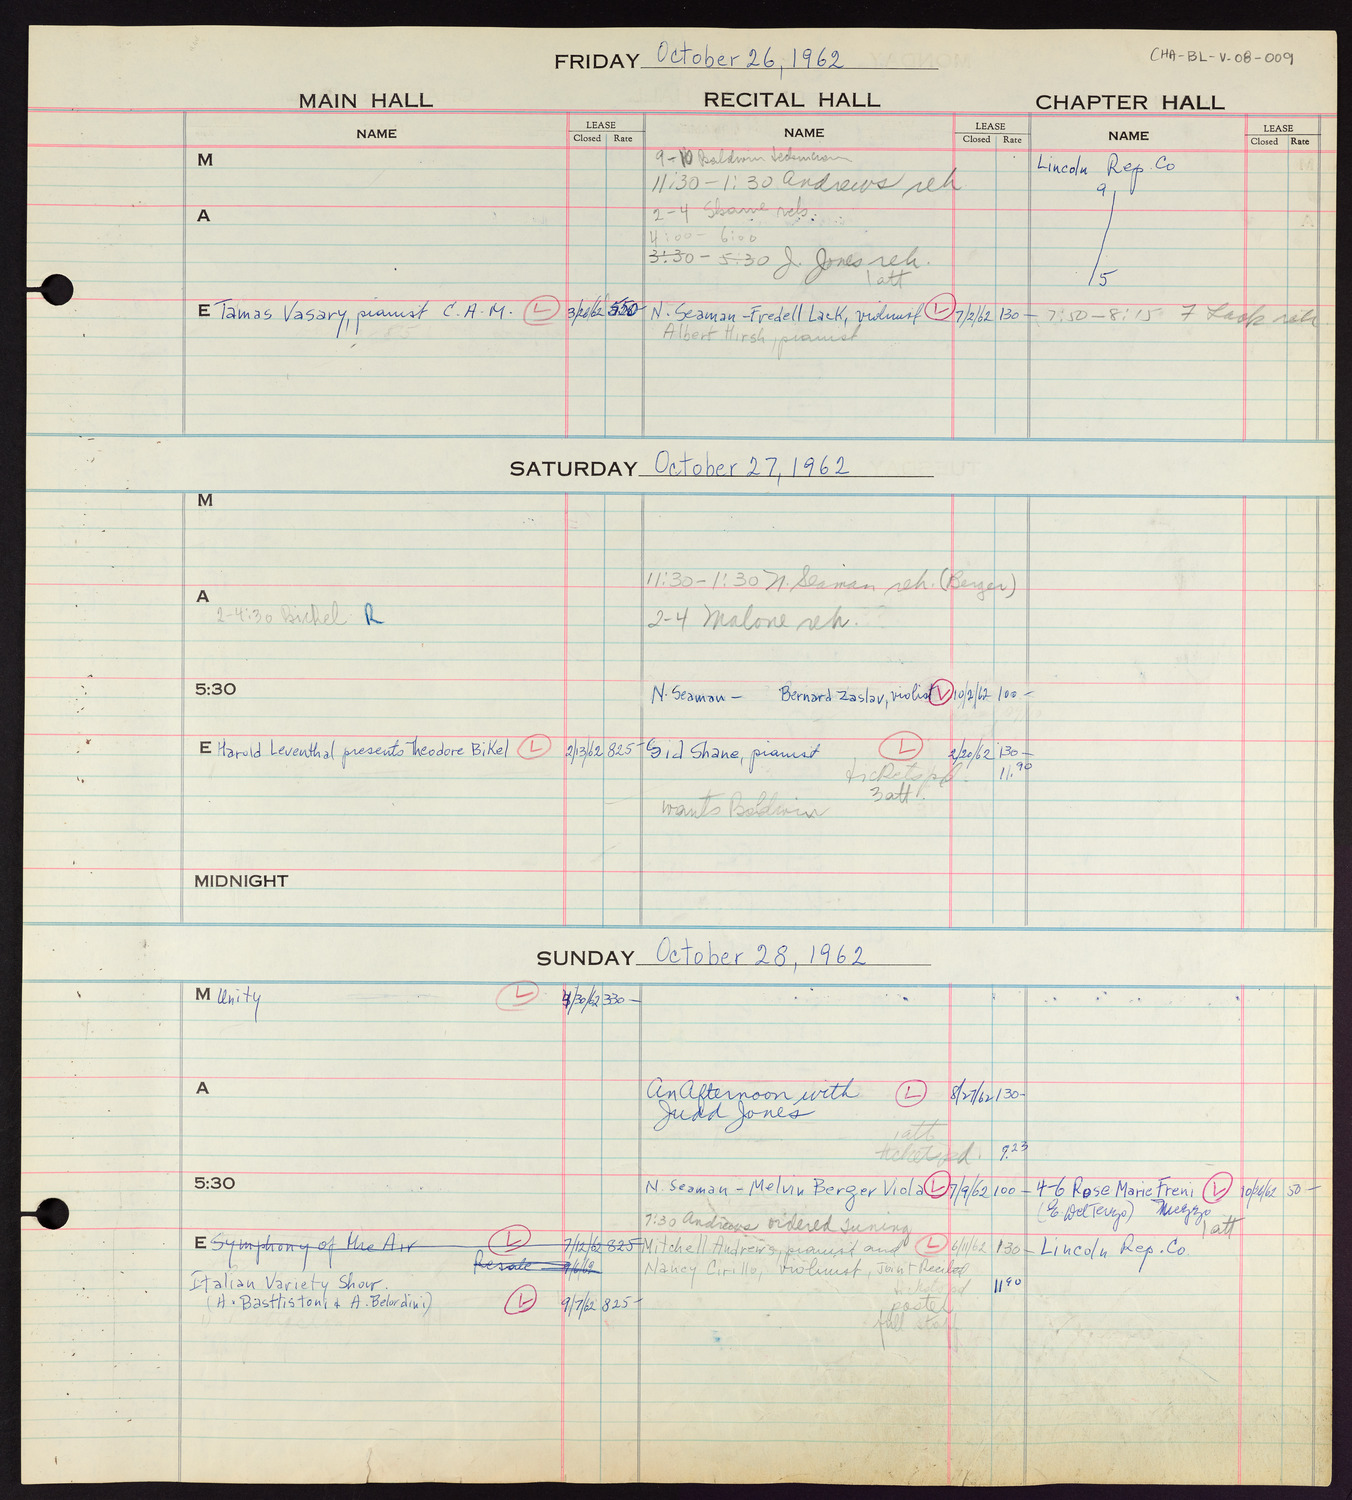 FRIDAY October 26, 1962
CHA-BL-V-08-009
MAIN HALL RECITAL HALL CHAPTER HALL
NAME LEASE Closed Rate NAME LEASE Closed Rate NAME LEASE Closed Rate
M
9-10 Baldwin
11:30-1:30 Andrews reh
Lincoln Rep. Co
9
5
A
2-4 Shane reh.
4:00- 6:00
3:30- 5:30 J. Jones reh.
1 att
E Tamas Vasary, pianist C.A.M. L 550 N. Seaman-Fredell Lack, violinist L 7/2/62 130- 7:50-8:15 F Lack reh
Albert Hirsh, pianist
SATURDAY October 27, 1962
M
11:30-1:30 N. Seaman reh. (Berger)
A
2-4:30 Bikel R
2-4 Malone reh.
5:30
N. Seaman- Bernard Zaslav, violist L 10/2/62 100-
E Harold Leventhal presents Theodore Bikel L 2/13/62 825- Sid Shane, pianist L 2/20/62 130-
tickets pd. 11.90
3 att.
wants Baldwin
MIDNIGHT
SUNDAY October 28, 1962
M Unity L 330-
A
An Afternoon with L 8/27/62 130-
Judd Jones
1 att
tickets pd. 9.23
5:30
N. Seaman-Melvin Berger Viola L 7/9/62 100- 4-6 Rose Marie Freni L 50-
Mezzo
1 att
7:30 Andrews ordered tuning
E Symphony of the Air L 7/12/62 825 Mitchell Andrews, pianist and L 6/11/62 130- Lincoln Rep. Co
Resale 9/6/62 Nancy Cirillo, violinist, Joint Recital
Italian Variety Show.
11.90
(A. Basttistoni & A. Belardini) L 9/7/62 825-
poster
full staff